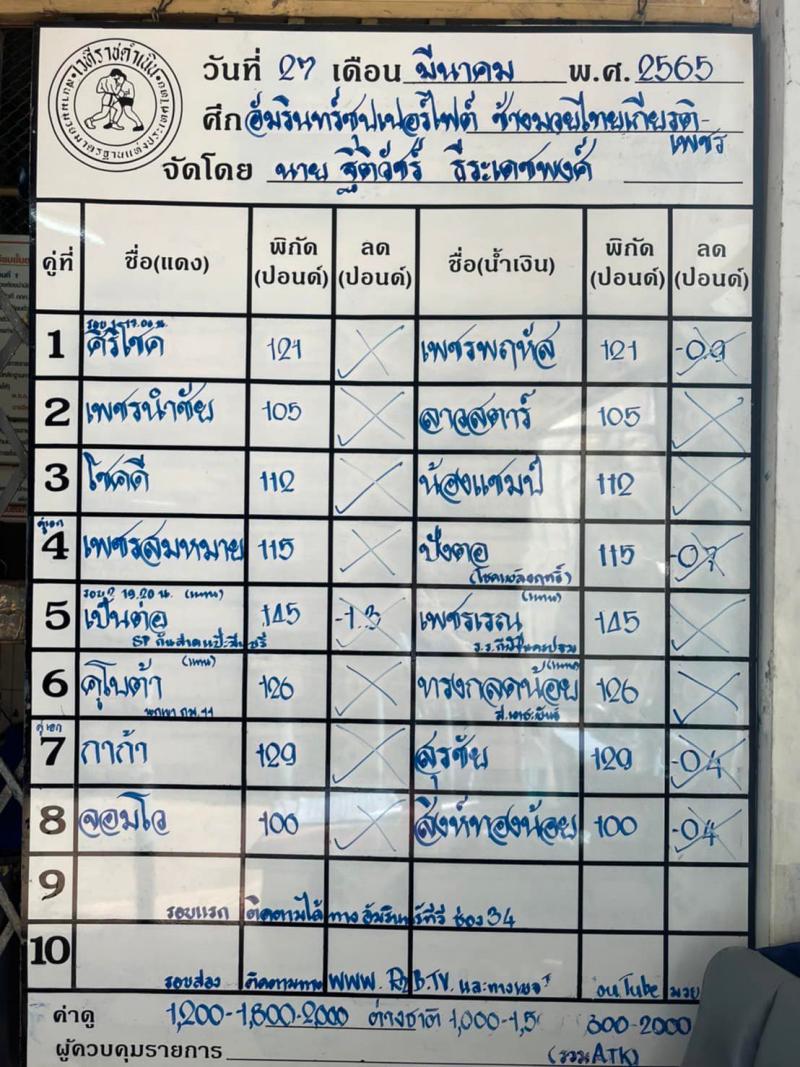 เวทีราชดำเนิน
สนามมวยมาตรฐานแห่งประเทศไทย
วันที่ 27 เดือน มีนาคม พ.ศ. 2565
ศึก อัมรินทร์ซุปเปอร์ไฟต์ ช้างมวยไทยเกียรติ-
เพชร
จัดโดย นาย ฐิติวัชร์ ธีระเดชพงศ์
คู่ที่ ชื่อ(แดง) พิกัด (ปอนด์) ลด (ปอนด์) ชื่อ(น้ำเงิน) พิกัด (ปอนด์) ลด (ปอนด์)
1 ศิริโชค 121 เพชรพฤหัส 121 -0.9
2 เพชรนำชัย 105 ลาวสตาร์ 105
3 โชคดี 112 น้องแชมป์ 112
คู่เอก
4 เพชรสมหมาย 115 ปังตอ 115
(โชคพลังฤทธิ์)
รอบ2 19.20 น. (แทน) (แทน)
5 เป็นต่อ 145 -1.3 เพชรเรณู 145
(แทน) (แทน)
6 คูโบต้า 126 ทรงกลดน้อย 126
คู่เอก
7 กาก้า 129 สุรชัย 129 -04
8 จอมโว 100 สิงห์ทองน้อย 100 -04
9
รอบแรก ติดตามได้ทาง อัมรินทร์ทีวี ช่อง 34
10
รอบสอง ติดตามทาง WWW. TV. และทาง ouTube มวย
ค่าดู 1,200-1,600-2,000 ต่างชาติ 1,000-1,5 600-2000
ผู้ควบคุมรายการ (รวมATK)